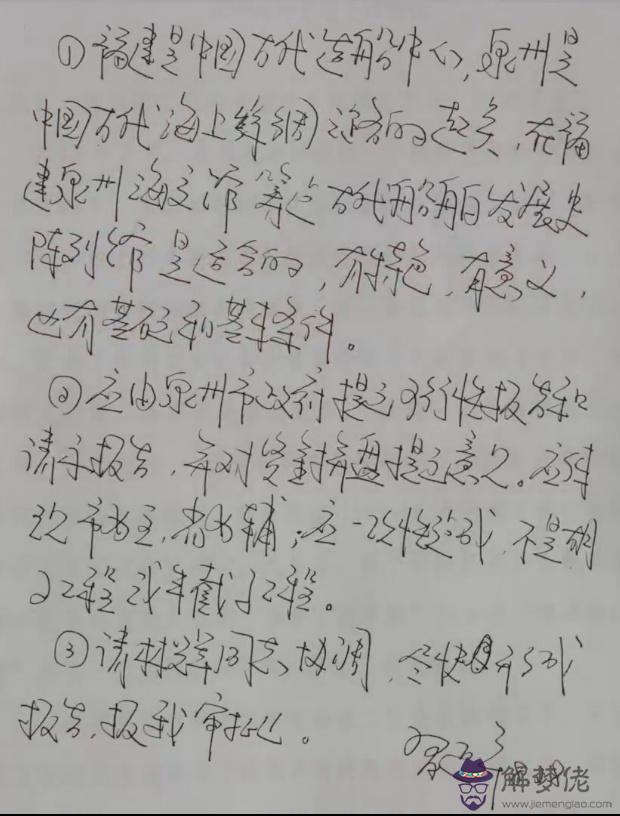 ①福建是中国古代造船中心,泉州是
中国古代海上丝绸之路的起点,在福
建泉州海交馆筹建古代船舶发展史
陈列馆是适合的,有特色,有意义,
也有基础和基本条件。
②应由泉州市政府提出可行性报告和
请示报告,并对资金拼盘提出意见。应体
现市为主,省为辅;应一次性完成,不是胡
子工程或半截子工程。
③请林 同志协调,尽快 形成
报告,报我审批。
习近平
解梦佬
www.jiemenglao.com